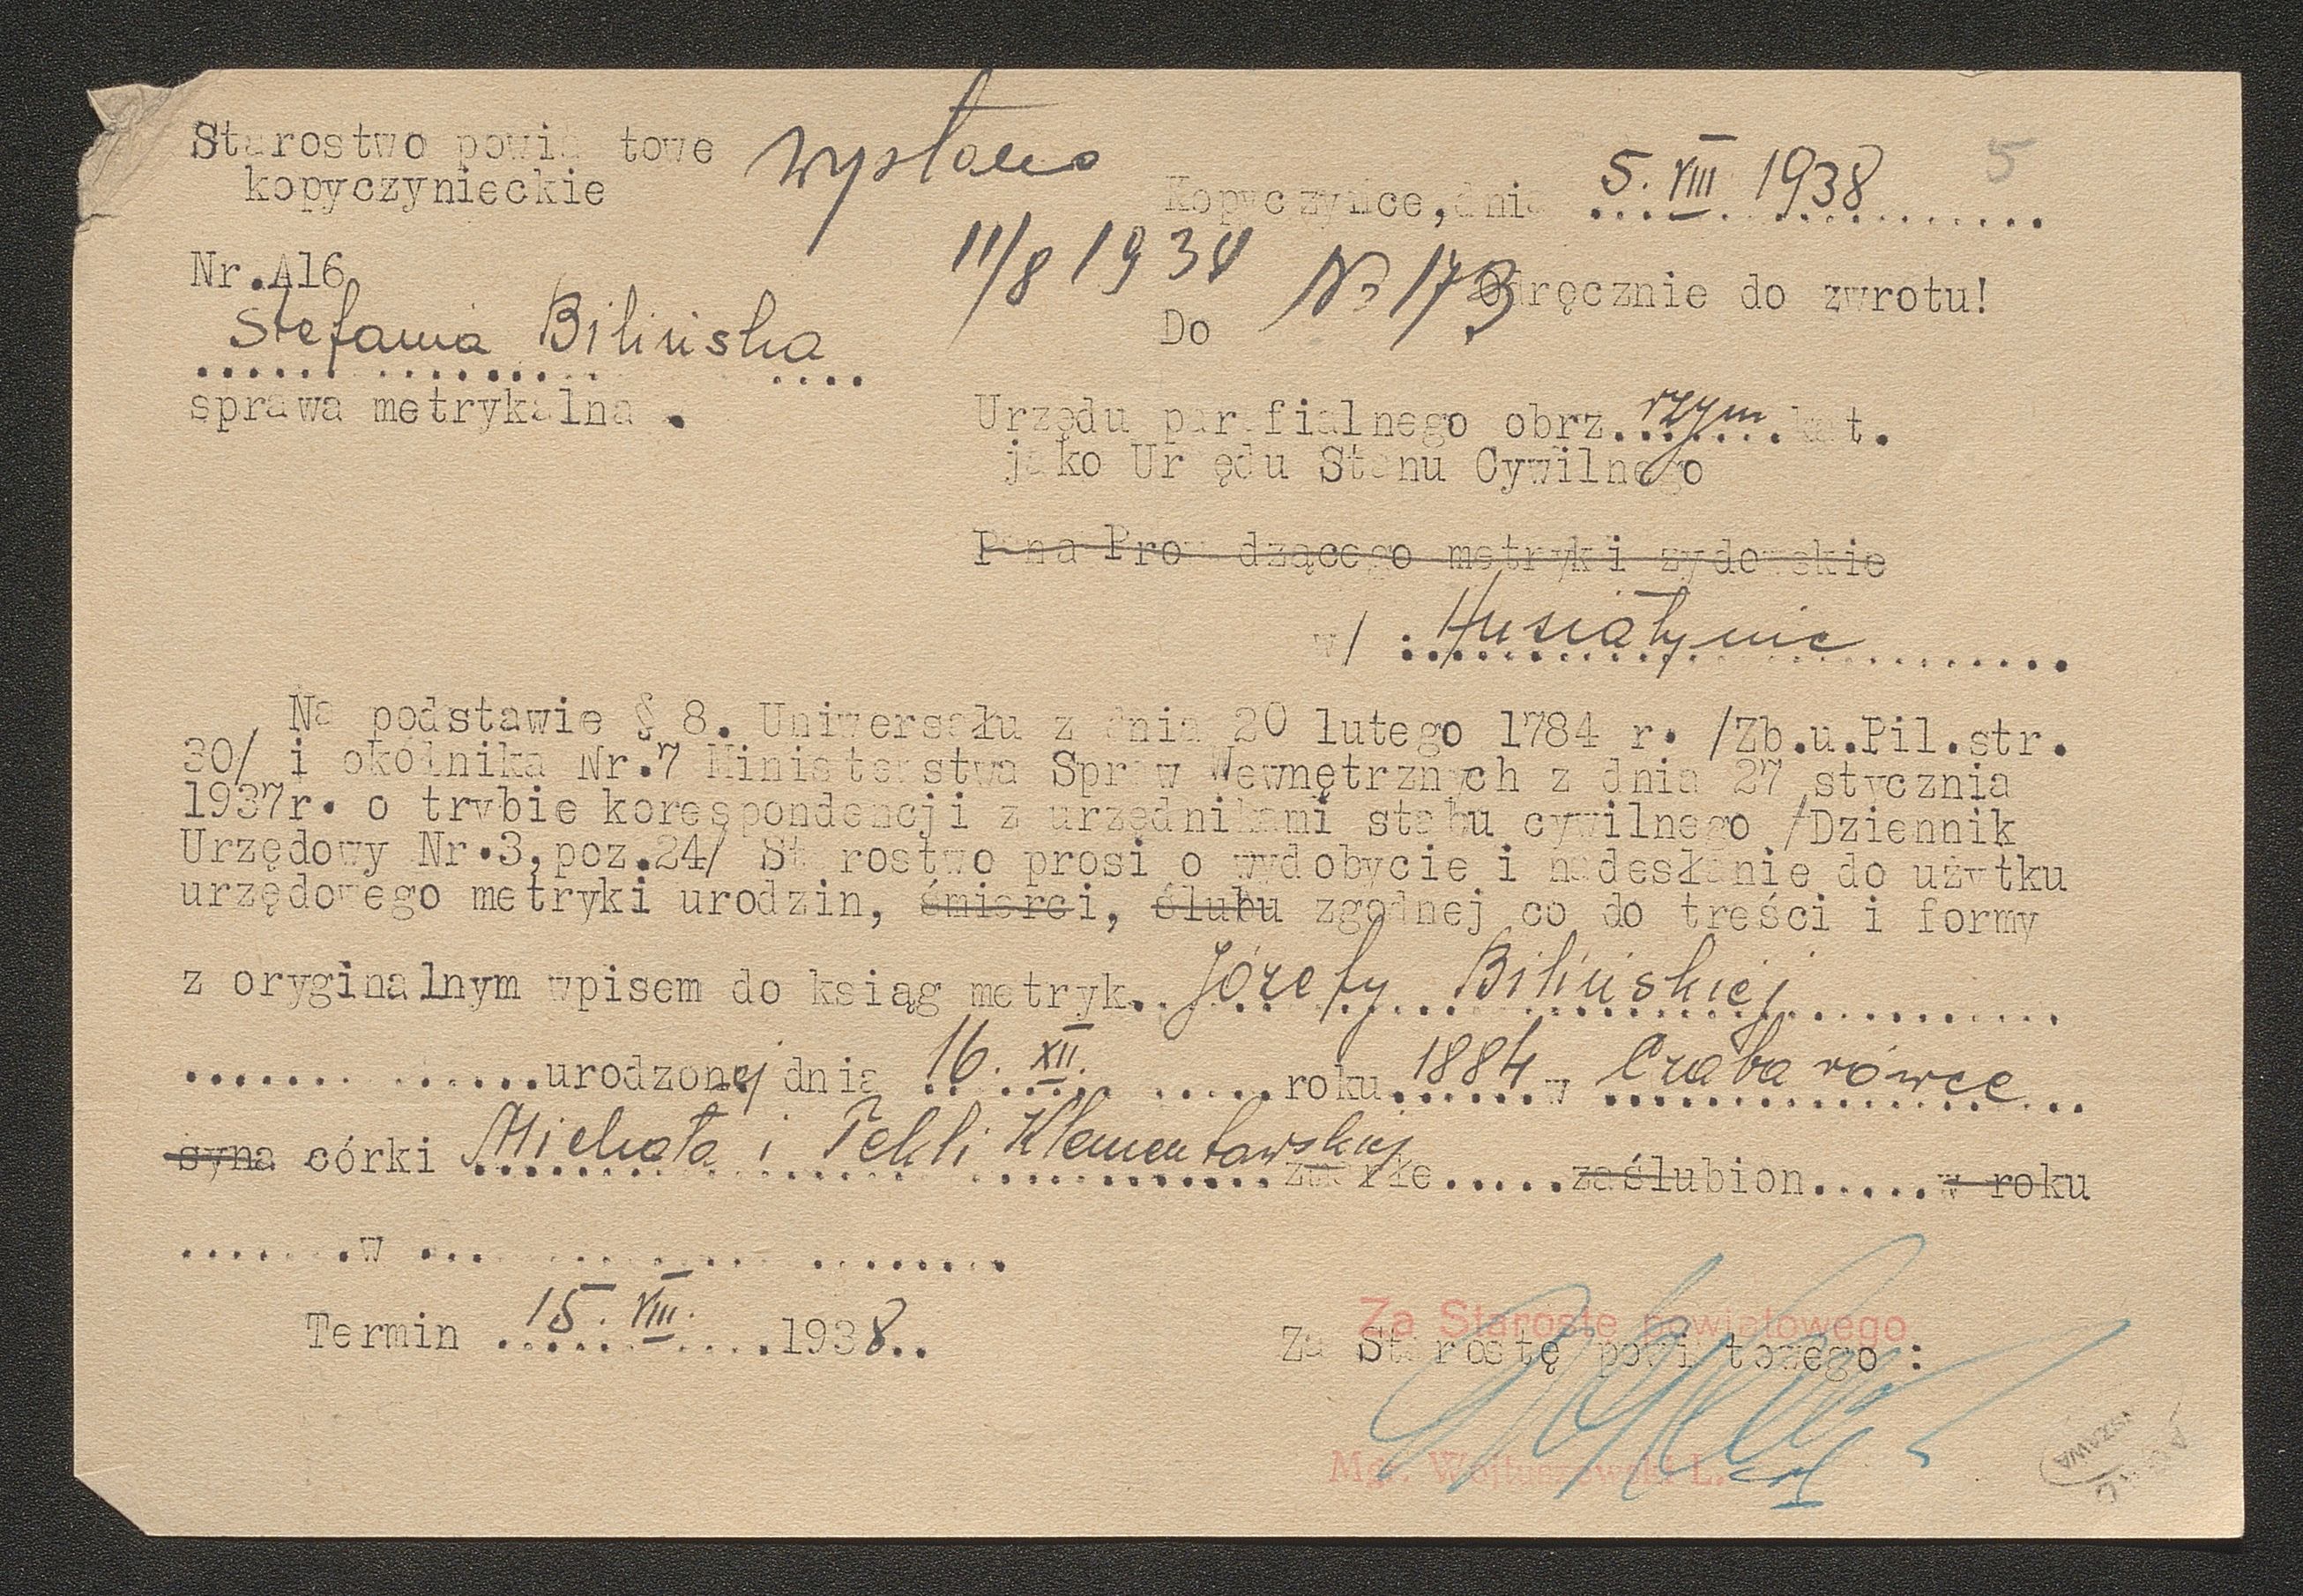 Starostwo powiatowe wysłano
kopyczynieckie
Kopyczyńce, dnia 5. VIII 1938 5
11/8 1938 No 173
Nr. A16 Odręcznie do zwrotu!
Stefania Bilińska Do
sprawa metrykalna.
Urzędu parafialnego obrz. rzym. kat.
jako Urzędu Stanu Cywilnego
Pana Prowadzącego metryki żydowskie
w/ Husiatynie
Na podstawie § 8. Uniwersału z dnia 20 lutego 1784 r. /Zb.u.Pil.str.
30/ i okólnika Nr.7 Ministerstwa Spraw Wewnętrznych z dnia 27 stycznia
1937r. o trybie korespondencji z urzędnikami stanu cywilnego /Dziennik
Urzędowy Nr.3,poz.24/ Starostwo prosi o wydobycie i nadesłanie do użytku
urzędowego metryki urodzin, śmierci, ślubu zgodnej co do treści i formy
z oryginalnym wpisem do ksiąg metryk.. Józefy Bilińskiej
............urodzonej dnia 16. XII. roku 1884 w Czabarówce
syna córki Michała i Tekli Klementowskiej zmarłe.....zaślubion.....w roku
.......w ..................
Termin 15. VIII. 1938..
Za Starostę powiatowego
Za Starostę powiatowego :
Mgr. Wojtuszewski L.